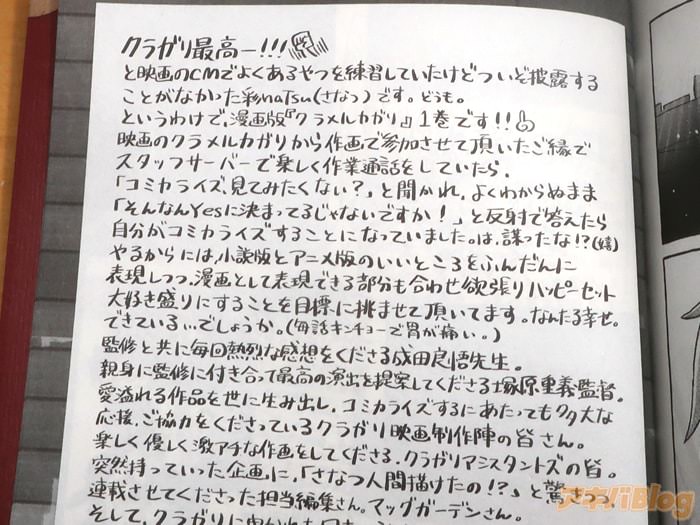 クラガリ最高ー!!!
と映画のCMでよくあるやつを練習していたけどついぞ披露する
ことがなかった彩naTsu(さなつ)です。どうも。
というわけで、漫画版『クラメルカガリ』1巻です!!
映画のクラメルカガリから作画で参加させて頂いたご縁で
スタッフサーバーで楽しく作業通話をしていたら、
「コミカライズ見てみたくない?」と聞かれ、よくわからぬまま
「そんなんYesに決まってるじゃないですか!」と反射で答えたら
自分がコミカライズすることになっていました。は、謀ったな!?(嬉)
やるからには、小説版とアニメ版のいいところをふんだんに
表現しつつ、漫画として表現できる部分も合わせ欲張りハッピーセット
大好き盛りにすることを目標に挑ませて頂いてます。なんたる幸せ。
できている…でしょうか。(毎話キンチョーで胃が痛い。)
監修と共に毎回熱烈な感想をくださる成田良悟先生。
親身に監修に付き合って最高の演出を提案してくださる塚原重義監督。
愛溢れる作品を世に生み出し、コミカライズするにあたっても多大な
応援、ご協力をくださっているクラガリ映画制作陣の皆さん。
楽しく優しく激アチな作画をしてくださる、クラガリアシスタントズの皆。
突然持っていった企画に、「さなつ人間描けたの!?」と驚きつつ
連載させてくださった担当編集さん。マッグガーデンさん。
そして、クラガリに
アキバBlog